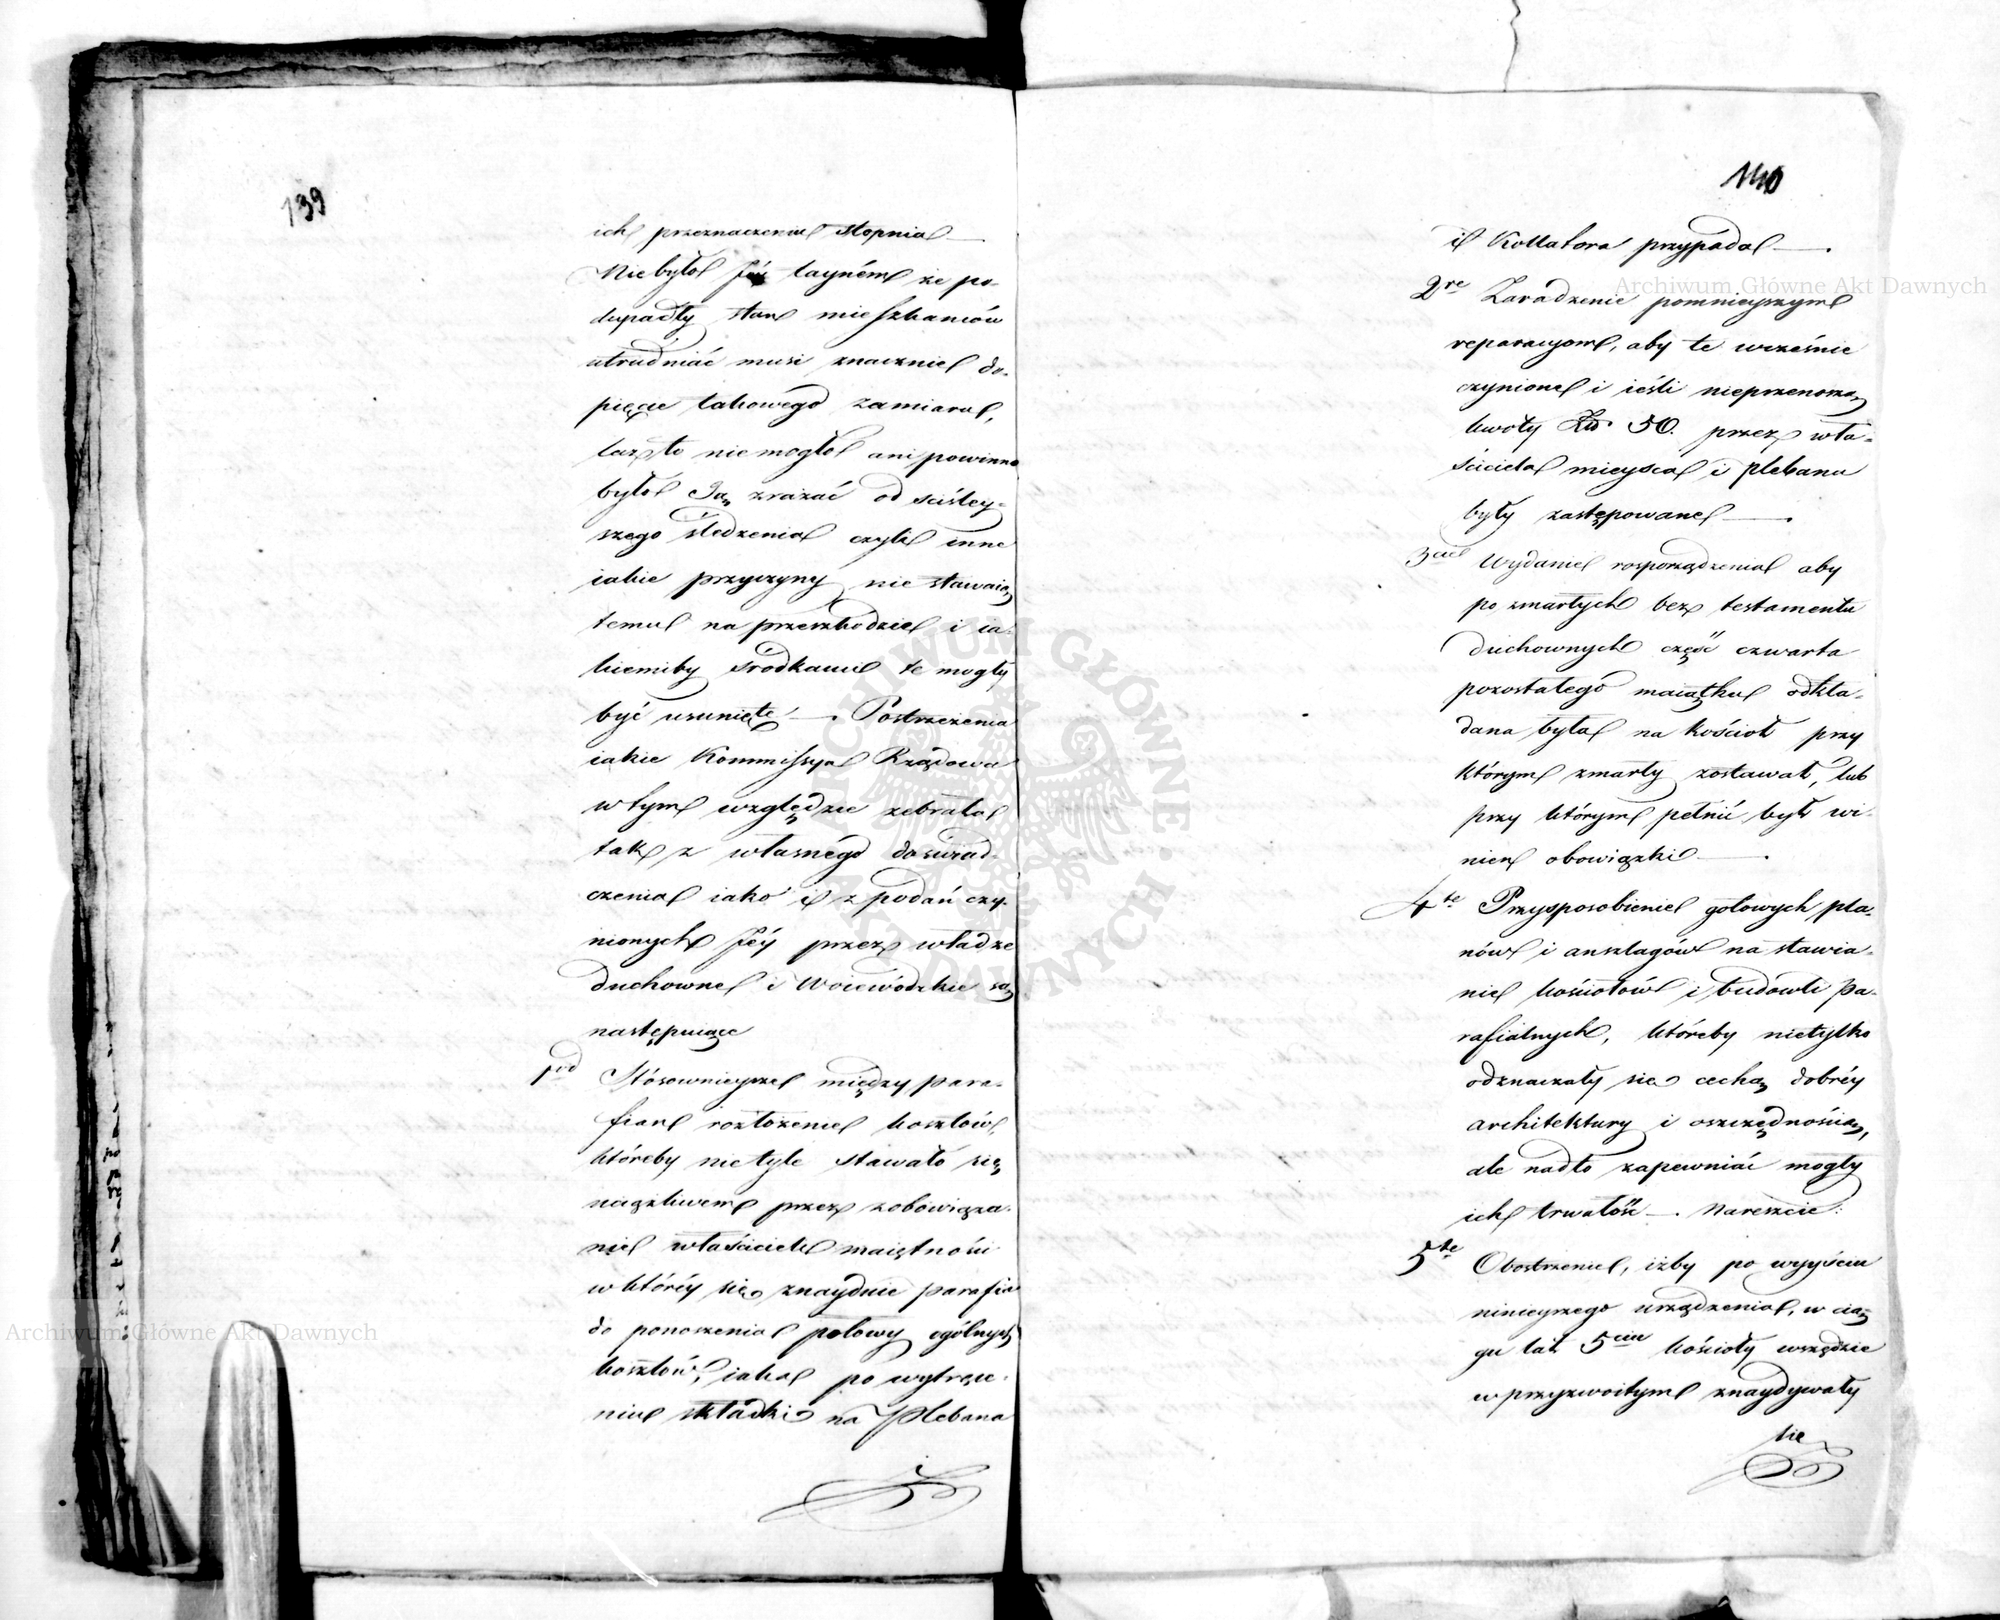 139
ich przeznaczenia stopnia —
Niebyło Jéj tayném że po-
dupadły stan mieszkańców
utrudniać musi znacznie do-
pięcie takowego zamiaru,
lecz to niemogło ani powinno
było Ją zrażać od ściśley-
szego śledzenia czyli inne
iakie przyczyny nie stawaią
temu na przeszkodzie i ia-
kiemiby srodkami te mogły
być usunięte —. Postrzeżenia
iakie Kommissya Rządowa
w tym względzie zebrała
tak z własnégo doświad-
czenia iako i z podań czy-
nionych Jéy przez władze
duchowne i Woiewódzkie są
następuiące
1mo Stósownieysze między para-
fian rozłożenie kosztów,
któreby nietyle stawało się
uciążliwem przez zobowiąza-
nie właściciela maiętności
w któréy się znayduie parafia
do ponoszenia połowy ogólnych
kosztów, iaka po wytrące-
niu składki na Plebana
140
i Kollatora przypada —.
2re Zaradzenie pomnieyszym
reparacyom, aby te wcześnie
czynione i ieśli nieprzenoszą
kwoty Złt. 50. przez wła-
ściciela mieysca i plebana
były zastępowane —.
3cie Wydanie rosporządzenia aby
po zmarłych bez testamentu
duchownych część czwarta
pozostałego maiątku odkła-
dana była na kościoł przy
którym zmarły zostawał, lub
przy którym pełnić był wi-
nien obowiązki —.
4te Przysposobienie gotowych pla-
nów i anszlagów na stawia-
nie kościołów i budowli pa-
rafialnych, któreby nietylko
odznaczały się cechą dobréy
architektury i oszczędnością,
ale nadto zapewniać mogły
ich trwałość —. Nareszcie:
5te Obostrzenie, iżby po wyyściu
ninieyszego urządzenia, w cią-
gu lat 5ciu kościoły wszędzie
w przyzwoitym znaydywały
się
Archiwum Główne Akt Dawnych
Archiwum Główne Akt Dawnych
ARCHIWUM GŁÓWNE AKT DAWNYCH